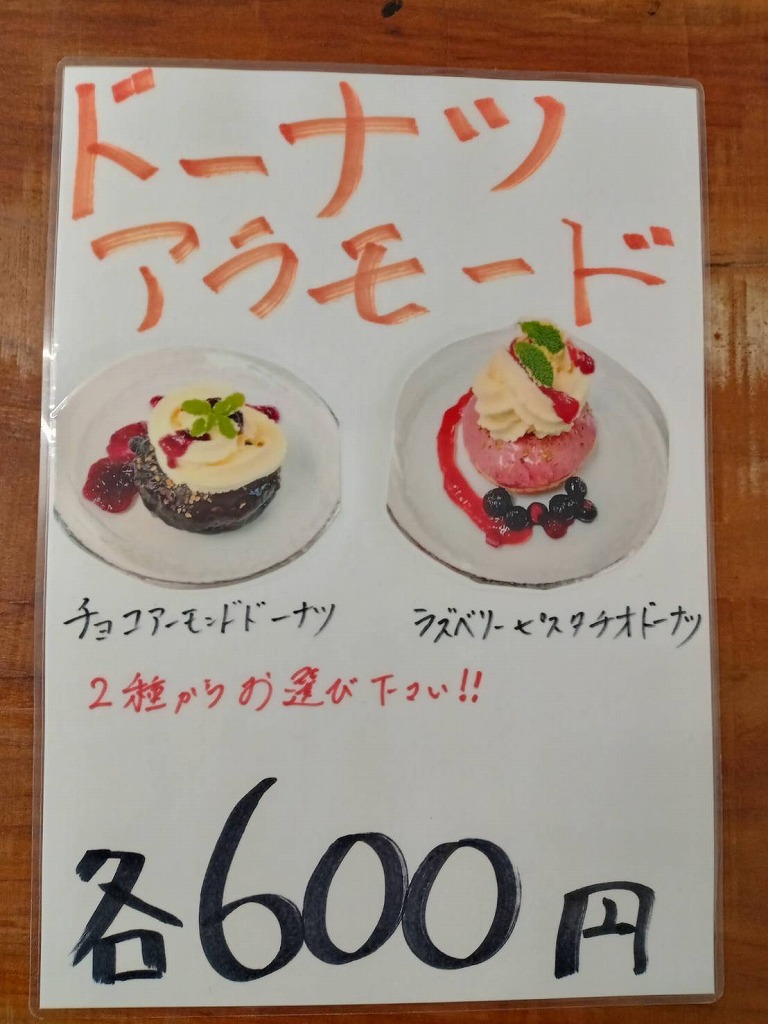 ドーナツ
アラモード
チョコアーモンドドーナツ
ラズベリーピスタチオドーナツ
2種からお選び下さい!!
各600円